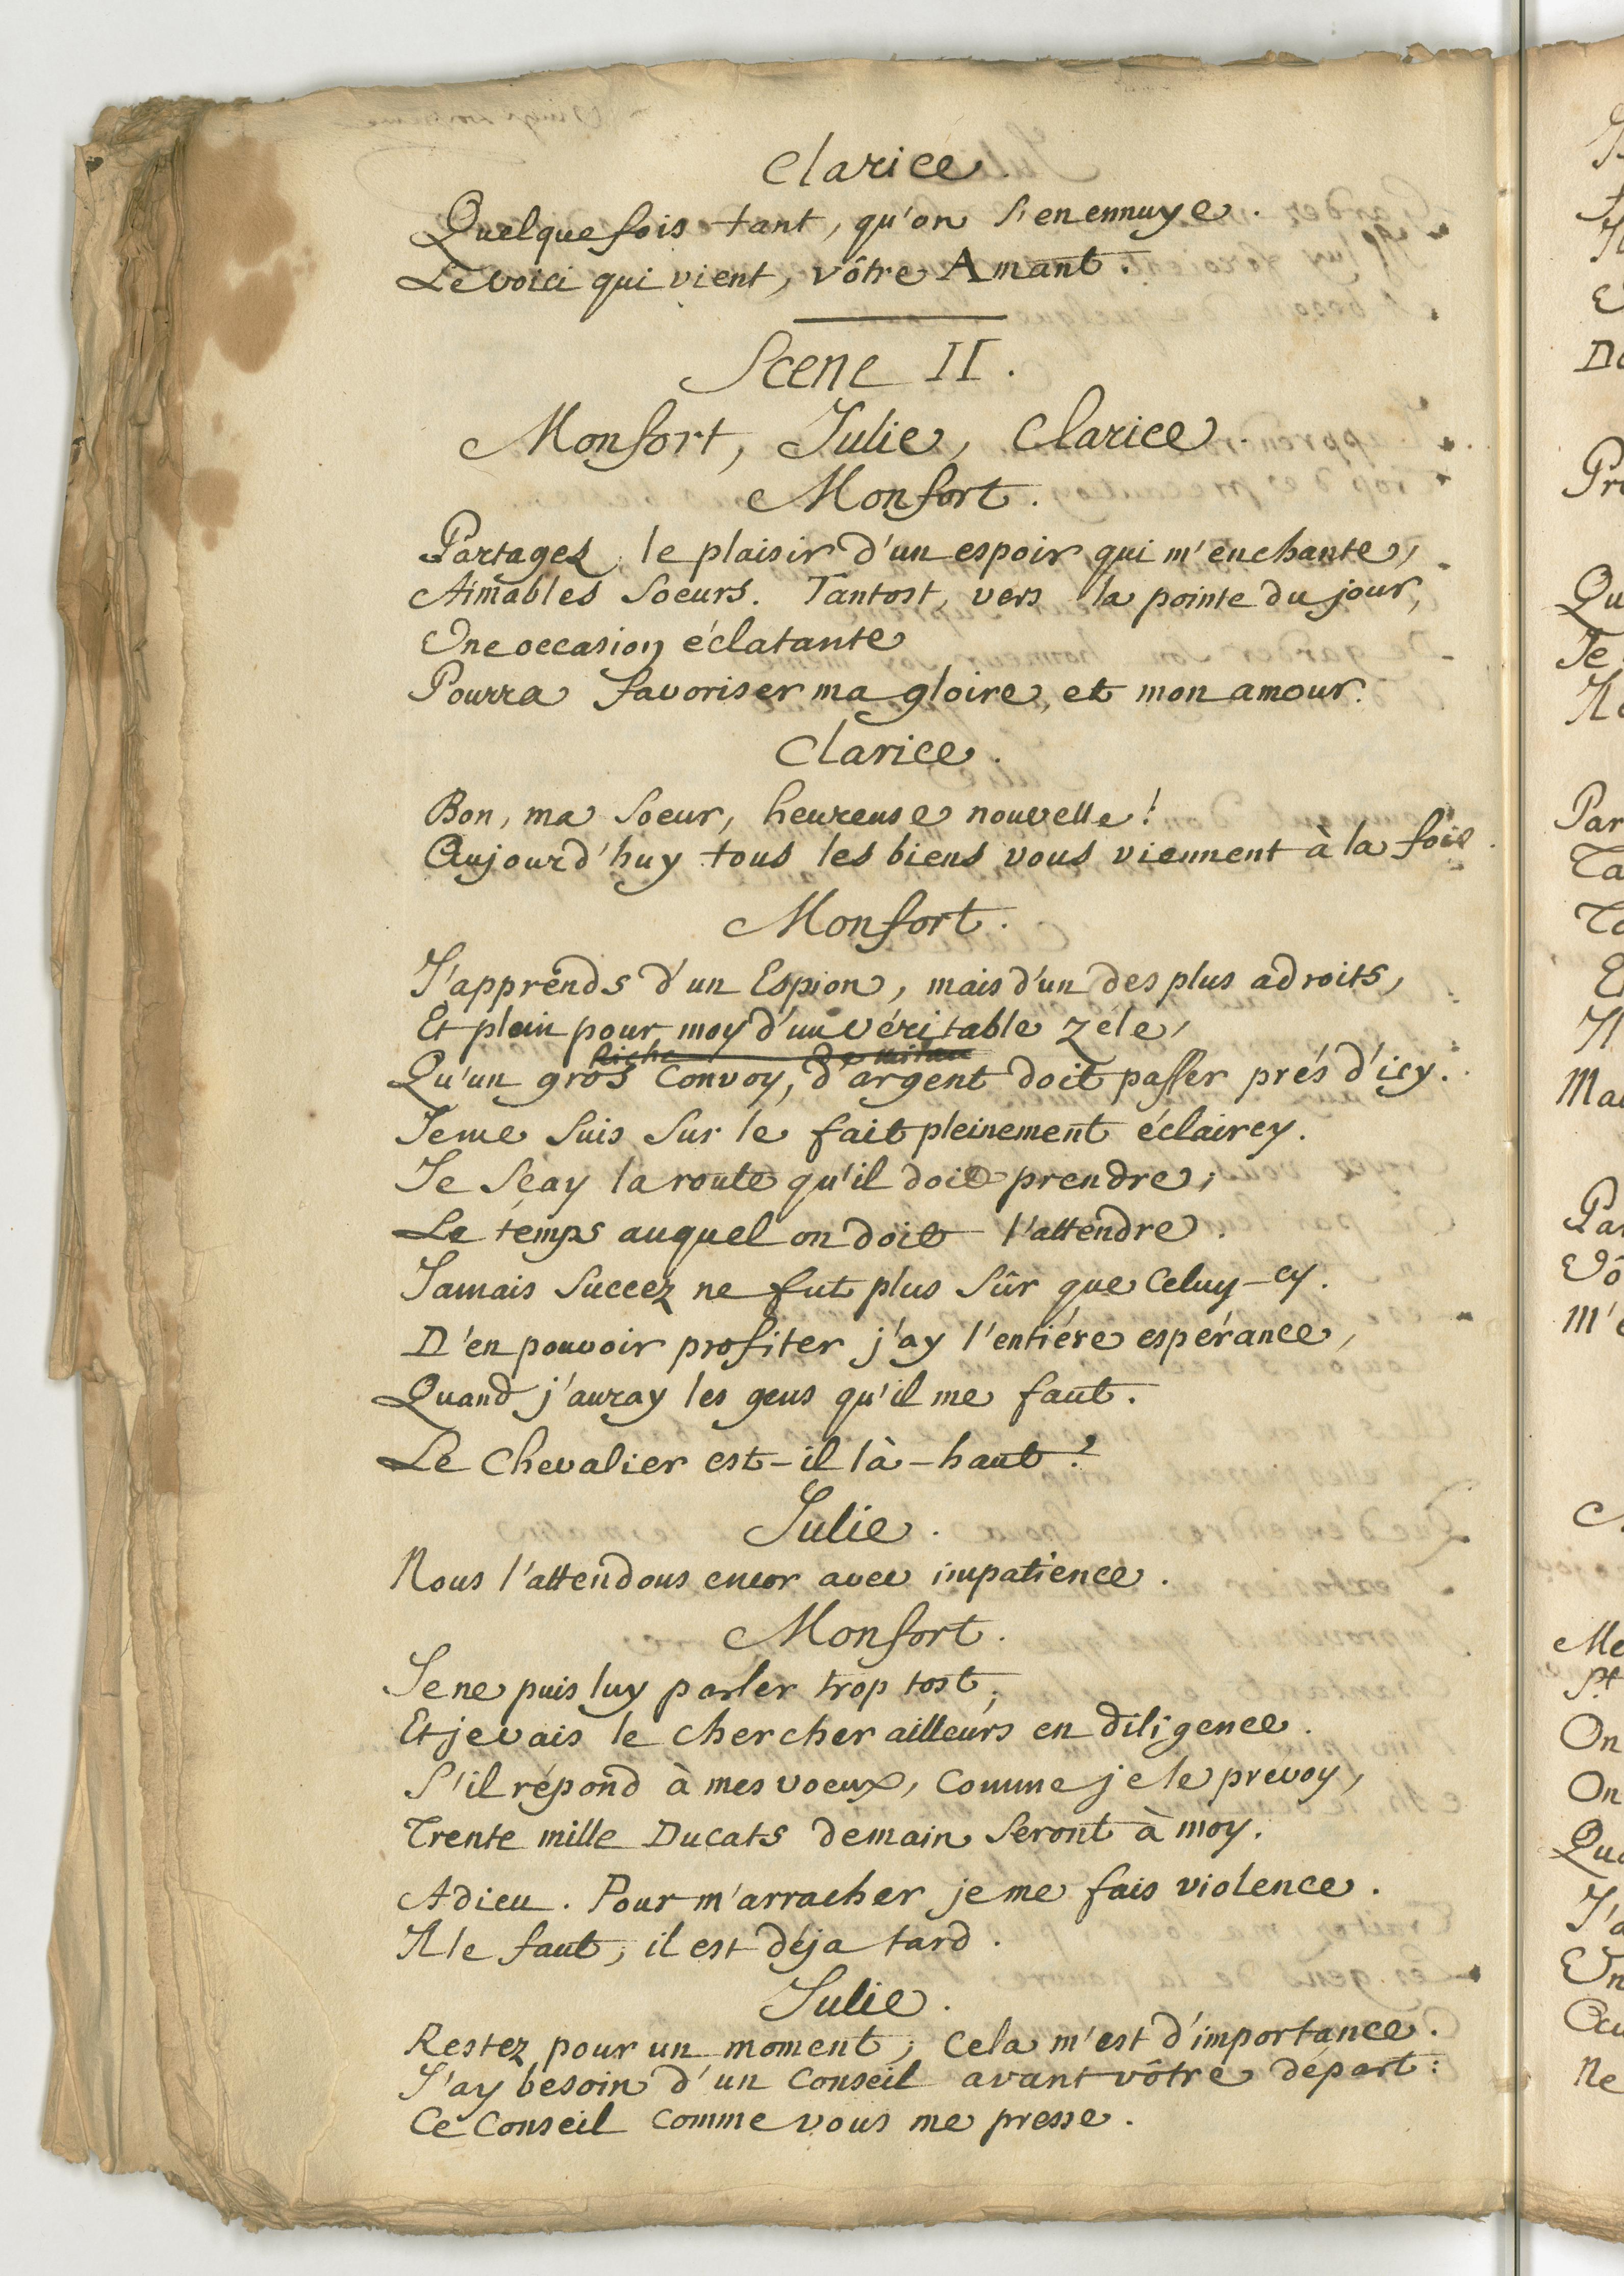 Clarice.
Quelquefois tant, qu'on s'en ennuye.
Le voici qui vient, vôtre Amant.
Scene II.
Monfort, Julie, Clarice.
Monfort.
Partagez le plaisir d'un espoir qui m'enchante,
Aimables Soeurs. Tantost, vers la pointe du jour,
Une occasion éclatante
Pourra favoriser ma gloire, et mon amour.
Clarice.
Bon, ma Soeur, heureuse nouvelle!
Aujourd'huy tous les biens vous viennent à la fois.
Monfort.
J'apprends d'un Espion, mais d'un des plus adroits,
Et plein pour moy d'un véritable zele,
Riche
Qu'un gros Convoy, d'argent doit passer prés d'icy.
Je me suis sur le fait pleinement éclaircy.
Je sçay la route qu'il doit prendre;
Le temps auquel on doit l'attendre.
Jamais succez ne fut plus sûr que celuy-cy.
D'en pouvoir profiter j'ay l'entiére espérance,
Quand j'auray les gens qu'il me faut.
Le Chevalier est-il là-haut?
Julie.
Nous l'attendons encor avec impatience.
Monfort.
Je ne puis luy parler trop tost;
Et je vais le chercher ailleurs en diligence.
S'il répond à mes voeux, comme je le prevoy,
Trente mille Ducats demain seront à moy.
Adieu. Pour m'arracher je me fais violence.
Il le faut; il est déja tard.
Julie.
Restez pour un moment; Cela m'est d'importance.
J'ay besoin d'un Conseil avant vôtre départ:
Ce Conseil comme vous me presse.